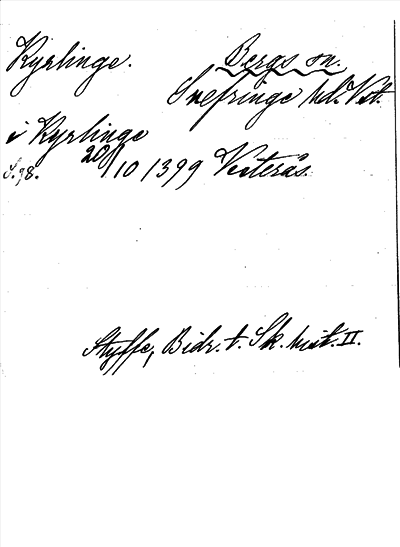 Kyrlinge.
Bergs sn.
Snefringe hd. Vst.
i Kyrlinge
S. 98.
20/10 1399 Vesterås.
Styffe, Bidr. t. Sk. hist. II.